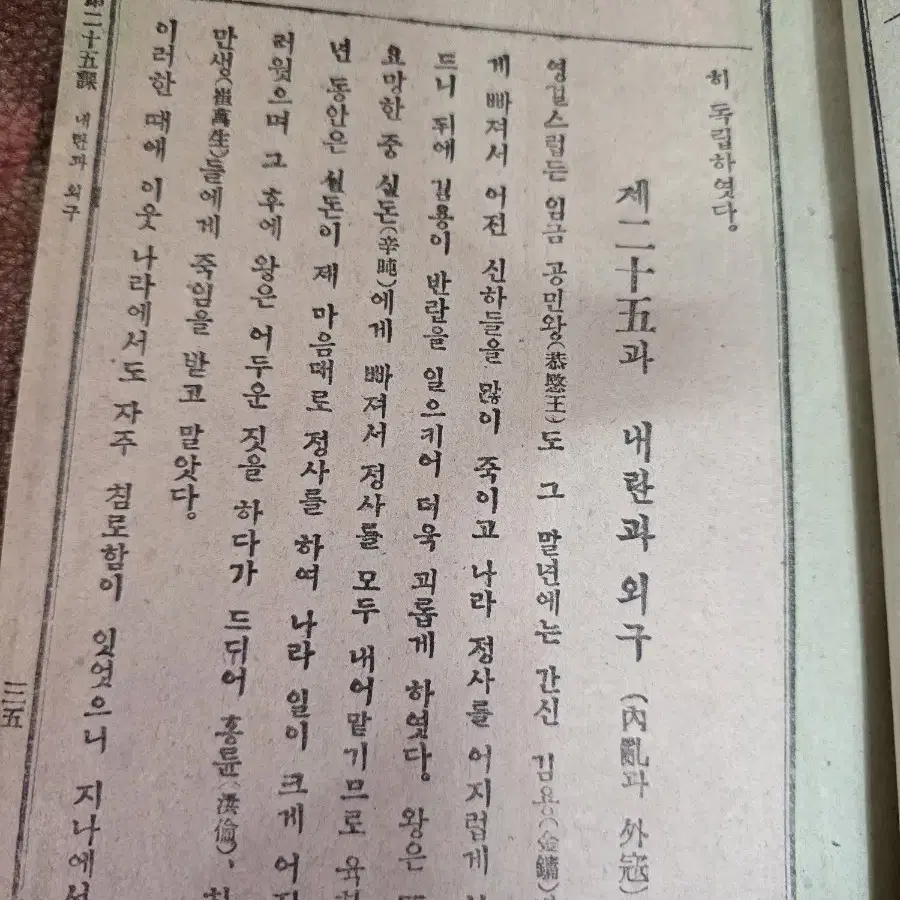 히 독립하엿다。
제二十五과 내란과 외구 (內亂과 外寇)
영걸스럽든 임금 공민왕(恭愍王)도 그 말년에는 간신 김용(金鏞)
게 빠져서 어진 신하들을 많이 죽이고 나라 정사를 어지럽게
드니 뒤에 김용이 반란을 일으키어 더욱 괴롭게 하엿다。 왕은
요망한 중 신돈(辛旽)에게 빠져서 정사를 모두 내어맡기므로
년 동안은 신돈이 제 마음대로 정사를 하여 나라 일이 크게
러윗으며 그 후에 왕은 어두운 짓을 하다가 드듸어 홍륜(洪倫)、
만생(崔萬生)들에게 죽임을 받고 말앗다。
이러한 때에 이웃 나라에서도 자주 침로함이 잇엇으니 지나에서
第二十五課 내란과 외구